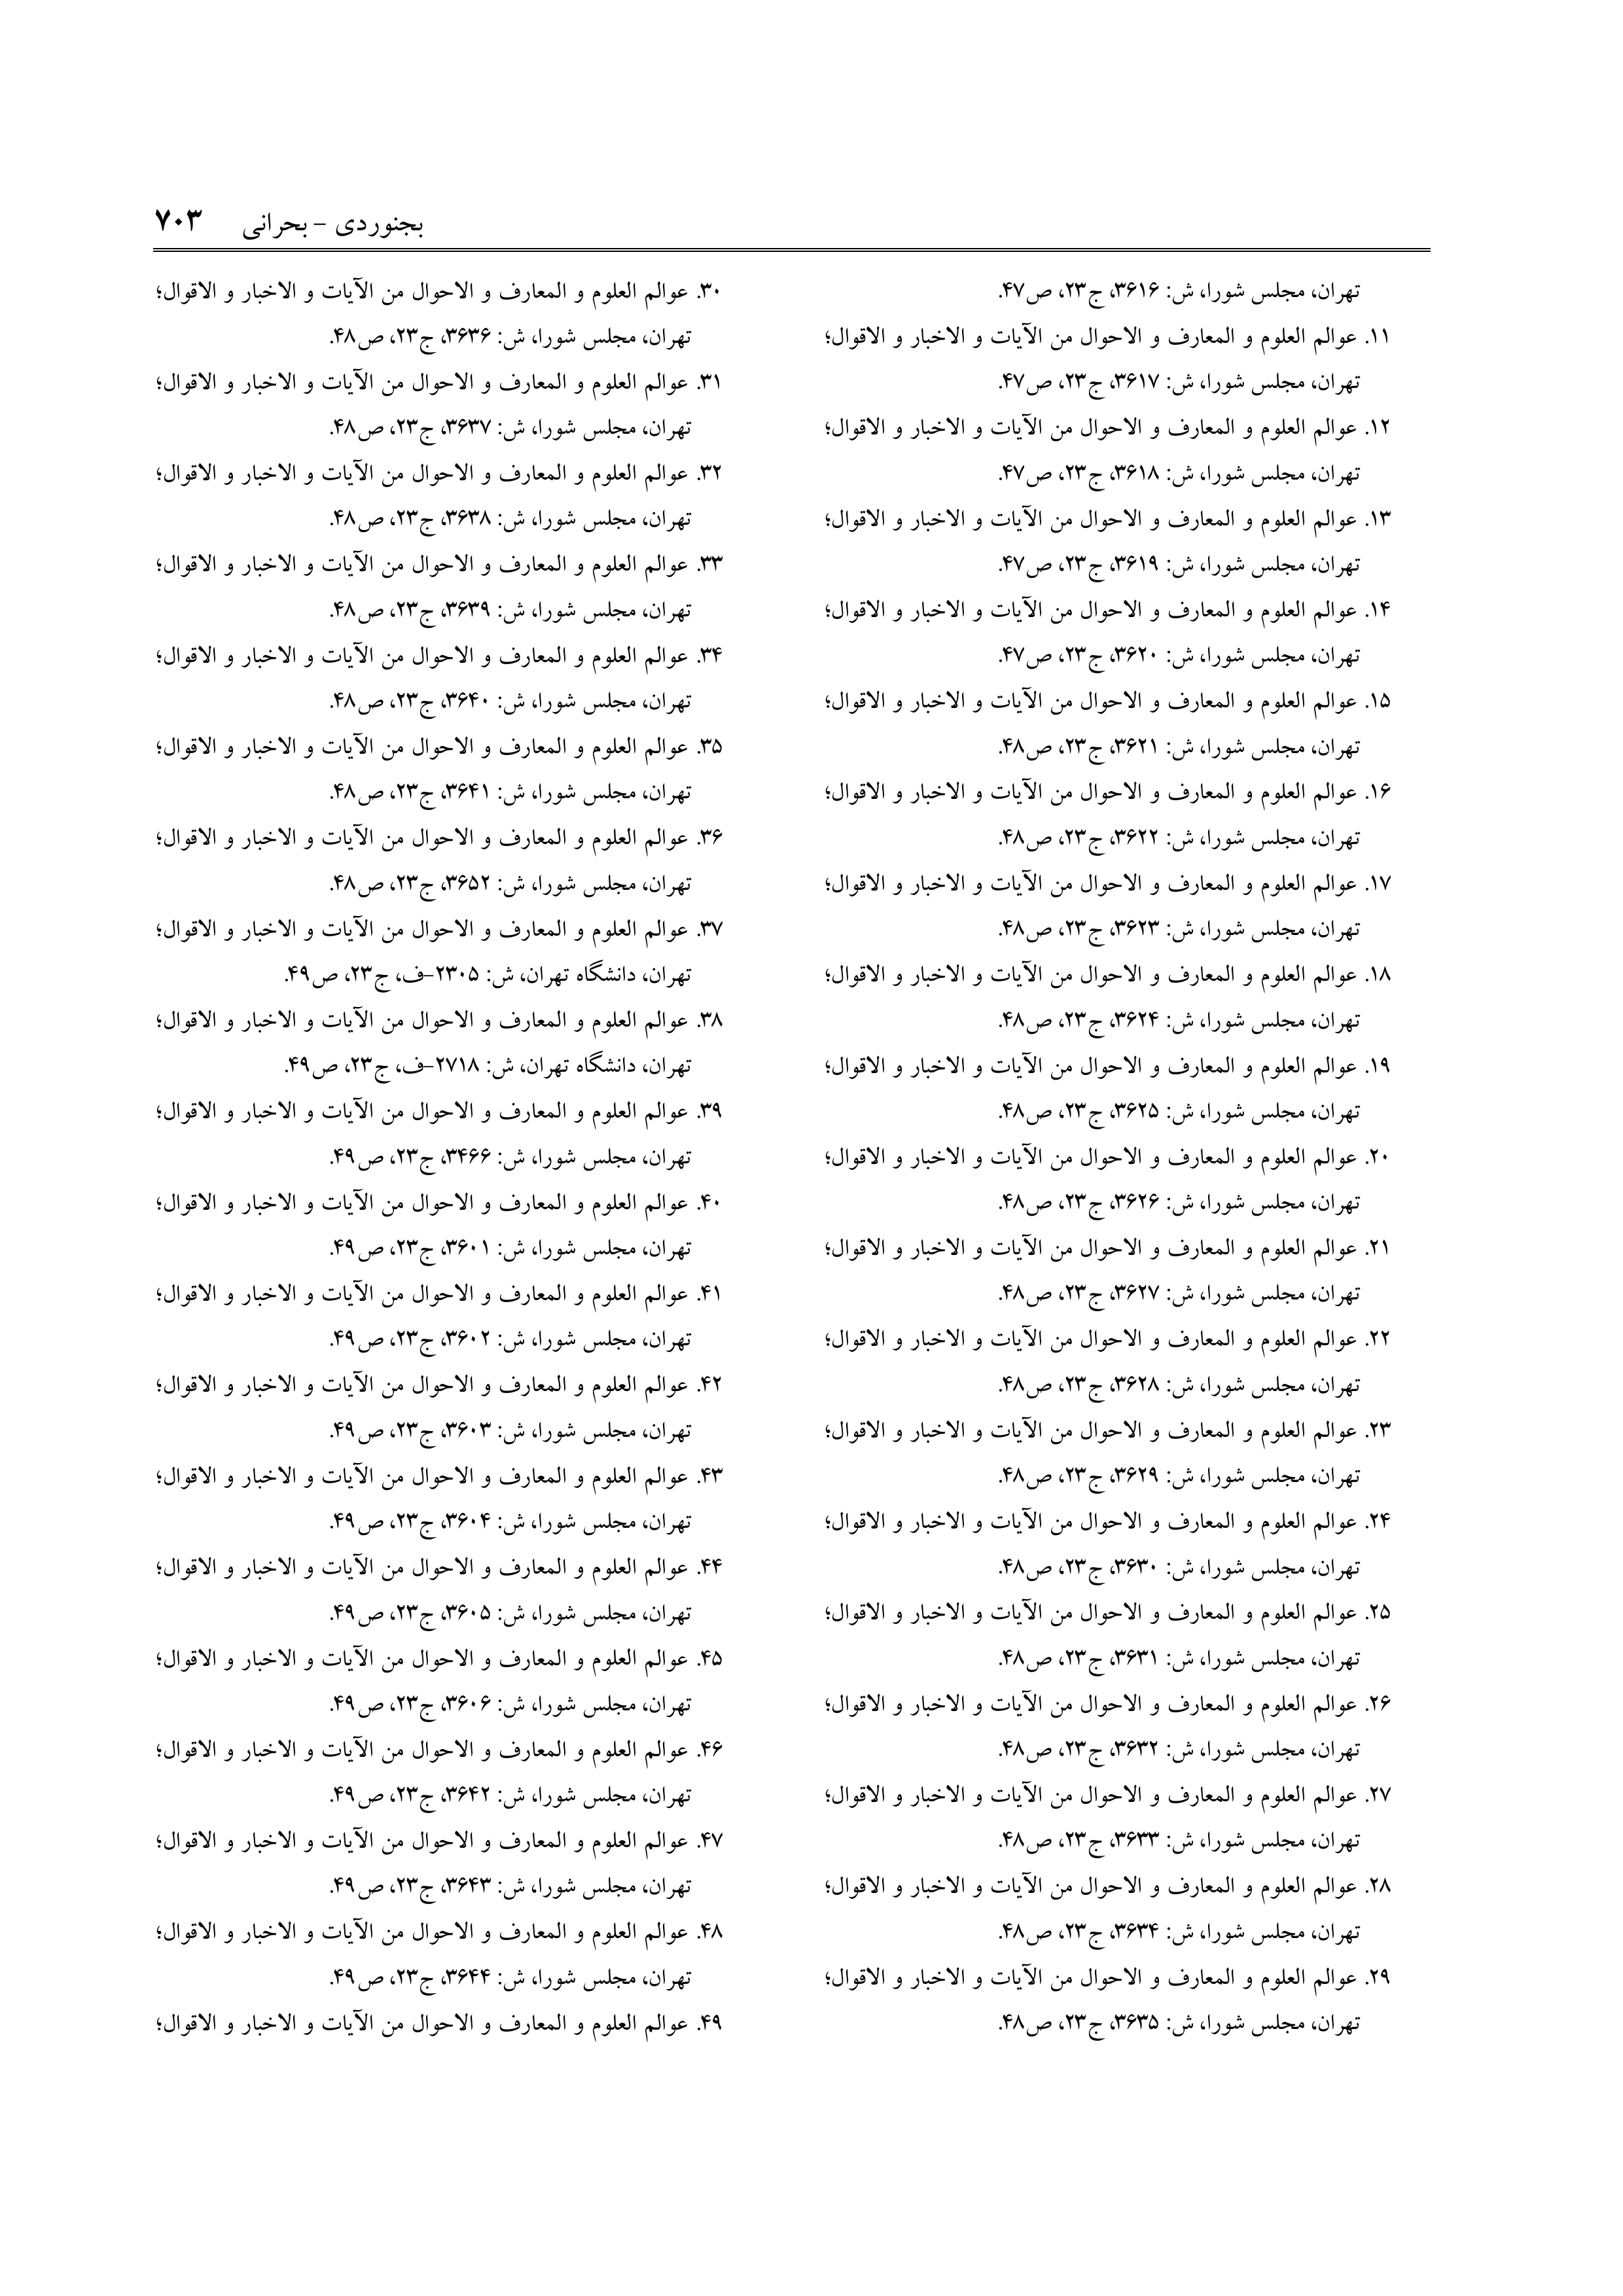 بجنوردی – بحرانی ۷۰۳
تهران، مجلس شورا، ش: ۳۶۱۶، ج۲۳، ص۴۷.
۱۱. عوالم العلوم و المعارف و الاحوال من الآیات و الاخبار و الاقوال؛
تهران، مجلس شورا، ش: ۳۶۱۷، ج۲۳، ص۴۷.
۱۲. عوالم العلوم و المعارف و الاحوال من الآیات و الاخبار و الاقوال؛
تهران، مجلس شورا، ش: ۳۶۱۸، ج۲۳، ص۴۷.
۱۳. عوالم العلوم و المعارف و الاحوال من الآیات و الاخبار و الاقوال؛
تهران، مجلس شورا، ش: ۳۶۱۹، ج۲۳، ص۴۷.
۱۴. عوالم العلوم و المعارف و الاحوال من الآیات و الاخبار و الاقوال؛
تهران، مجلس شورا، ش: ۳۶۲۰، ج۲۳، ص۴۷.
۱۵. عوالم العلوم و المعارف و الاحوال من الآیات و الاخبار و الاقوال؛
تهران، مجلس شورا، ش: ۳۶۲۱، ج۲۳، ص۴۸.
۱۶. عوالم العلوم و المعارف و الاحوال من الآیات و الاخبار و الاقوال؛
تهران، مجلس شورا، ش: ۳۶۲۲، ج۲۳، ص۴۸.
۱۷. عوالم العلوم و المعارف و الاحوال من الآیات و الاخبار و الاقوال؛
تهران، مجلس شورا، ش: ۳۶۲۳، ج۲۳، ص۴۸.
۱۸. عوالم العلوم و المعارف و الاحوال من الآیات و الاخبار و الاقوال؛
تهران، مجلس شورا، ش: ۳۶۲۴، ج۲۳، ص۴۸.
۱۹. عوالم العلوم و المعارف و الاحوال من الآیات و الاخبار و الاقوال؛
تهران، مجلس شورا، ش: ۳۶۲۵، ج۲۳، ص۴۸.
۲۰. عوالم العلوم و المعارف و الاحوال من الآیات و الاخبار و الاقوال؛
تهران، مجلس شورا، ش: ۳۶۲۶، ج۲۳، ص۴۸.
۲۱. عوالم العلوم و المعارف و الاحوال من الآیات و الاخبار و الاقوال؛
تهران، مجلس شورا، ش: ۳۶۲۷، ج۲۳، ص۴۸.
۲۲. عوالم العلوم و المعارف و الاحوال من الآیات و الاخبار و الاقوال؛
تهران، مجلس شورا، ش: ۳۶۲۸، ج۲۳، ص۴۸.
۲۳. عوالم العلوم و المعارف و الاحوال من الآیات و الاخبار و الاقوال؛
تهران، مجلس شورا، ش: ۳۶۲۹، ج۲۳، ص۴۸.
۲۴. عوالم العلوم و المعارف و الاحوال من الآیات و الاخبار و الاقوال؛
تهران، مجلس شورا، ش: ۳۶۳۰، ج۲۳، ص۴۸.
۲۵. عوالم العلوم و المعارف و الاحوال من الآیات و الاخبار و الاقوال؛
تهران، مجلس شورا، ش: ۳۶۳۱، ج۲۳، ص۴۸.
۲۶. عوالم العلوم و المعارف و الاحوال من الآیات و الاخبار و الاقوال؛
تهران، مجلس شورا، ش: ۳۶۳۲، ج۲۳، ص۴۸.
۲۷. عوالم العلوم و المعارف و الاحوال من الآیات و الاخبار و الاقوال؛
تهران، مجلس شورا، ش: ۳۶۳۳، ج۲۳، ص۴۸.
۲۸. عوالم العلوم و المعارف و الاحوال من الآیات و الاخبار و الاقوال؛
تهران، مجلس شورا، ش: ۳۶۳۴، ج۲۳، ص۴۸.
۲۹. عوالم العلوم و المعارف و الاحوال من الآیات و الاخبار و الاقوال؛
تهران، مجلس شورا، ش: ۳۶۳۵، ج۲۳، ص۴۸.
۳۰. عوالم العلوم و المعارف و الاحوال من الآیات و الاخبار و الاقوال؛
تهران، مجلس شورا، ش: ۳۶۳۶، ج۲۳، ص۴۸.
۳۱. عوالم العلوم و المعارف و الاحوال من الآیات و الاخبار و الاقوال؛
تهران، مجلس شورا، ش: ۳۶۳۷، ج۲۳، ص۴۸.
۳۲. عوالم العلوم و المعارف و الاحوال من الآیات و الاخبار و الاقوال؛
تهران، مجلس شورا، ش: ۳۶۳۸، ج۲۳، ص۴۸.
۳۳. عوالم العلوم و المعارف و الاحوال من الآیات و الاخبار و الاقوال؛
تهران، مجلس شورا، ش: ۳۶۳۹، ج۲۳، ص۴۸.
۳۴. عوالم العلوم و المعارف و الاحوال من الآیات و الاخبار و الاقوال؛
تهران، مجلس شورا، ش: ۳۶۴۰، ج۲۳، ص۴۸.
۳۵. عوالم العلوم و المعارف و الاحوال من الآیات و الاخبار و الاقوال؛
تهران، مجلس شورا، ش: ۳۶۴۱، ج۲۳، ص۴۸.
۳۶. عوالم العلوم و المعارف و الاحوال من الآیات و الاخبار و الاقوال؛
تهران، مجلس شورا، ش: ۳۶۵۲، ج۲۳، ص۴۸.
۳۷. عوالم العلوم و المعارف و الاحوال من الآیات و الاخبار و الاقوال؛
تهران، دانشگاه تهران، ش: ۲۳۰۵-ف، ج۲۳، ص۴۹.
۳۸. عوالم العلوم و المعارف و الاحوال من الآیات و الاخبار و الاقوال؛
تهران، دانشگاه تهران، ش: ۲۷۱۸-ف، ج۲۳، ص۴۹.
۳۹. عوالم العلوم و المعارف و الاحوال من الآیات و الاخبار و الاقوال؛
تهران، مجلس شورا، ش: ۳۴۶۶، ج۲۳، ص۴۹.
۴۰. عوالم العلوم و المعارف و الاحوال من الآیات و الاخبار و الاقوال؛
تهران، مجلس شورا، ش: ۳۶۰۱، ج۲۳، ص۴۹.
۴۱. عوالم العلوم و المعارف و الاحوال من الآیات و الاخبار و الاقوال؛
تهران، مجلس شورا، ش: ۳۶۰۲، ج۲۳، ص۴۹.
۴۲. عوالم العلوم و المعارف و الاحوال من الآیات و الاخبار و الاقوال؛
تهران، مجلس شورا، ش: ۳۶۰۳، ج۲۳، ص۴۹.
۴۳. عوالم العلوم و المعارف و الاحوال من الآیات و الاخبار و الاقوال؛
تهران، مجلس شورا، ش: ۳۶۰۴، ج۲۳، ص۴۹.
۴۴. عوالم العلوم و المعارف و الاحوال من الآیات و الاخبار و الاقوال؛
تهران، مجلس شورا، ش: ۳۶۰۵، ج۲۳، ص۴۹.
۴۵. عوالم العلوم و المعارف و الاحوال من الآیات و الاخبار و الاقوال؛
تهران، مجلس شورا، ش: ۳۶۰۶، ج۲۳، ص۴۹.
۴۶. عوالم العلوم و المعارف و الاحوال من الآیات و الاخبار و الاقوال؛
تهران، مجلس شورا، ش: ۳۶۴۲، ج۲۳، ص۴۹.
۴۷. عوالم العلوم و المعارف و الاحوال من الآیات و الاخبار و الاقوال؛
تهران، مجلس شورا، ش: ۳۶۴۳، ج۲۳، ص۴۹.
۴۸. عوالم العلوم و المعارف و الاحوال من الآیات و الاخبار و الاقوال؛
تهران، مجلس شورا، ش: ۳۶۴۴، ج۲۳، ص۴۹.
۴۹. عوالم العلوم و المعارف و الاحوال من الآیات و الاخبار و الاقوال؛